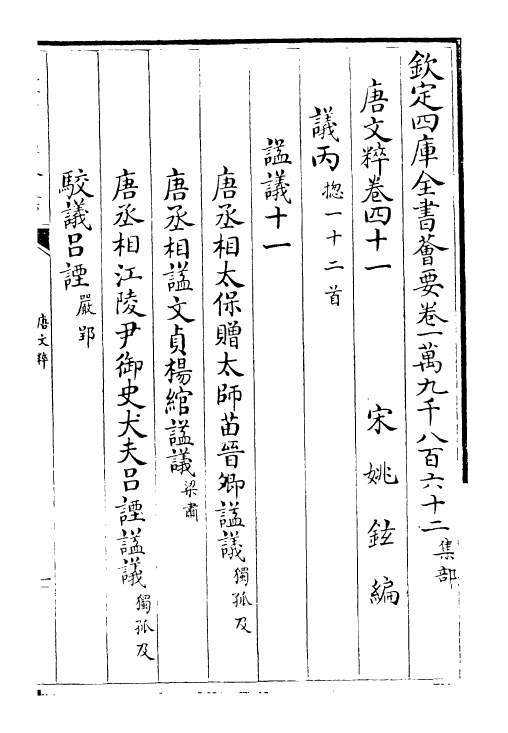 欽定四庫全書薈要卷一萬九千八百六十二 集部
唐文粹卷四十一 宋 姚鉉 編
議丙 揔一十二首
諡議十一
唐丞相太保贈太師苗晉卿諡議 獨孤及
唐丞相諡文貞楊綰諡議 梁肅
唐丞相江陵尹御史大夫吕諲諡議 獨孤及
駮議吕諲 嚴郢
唐文粹